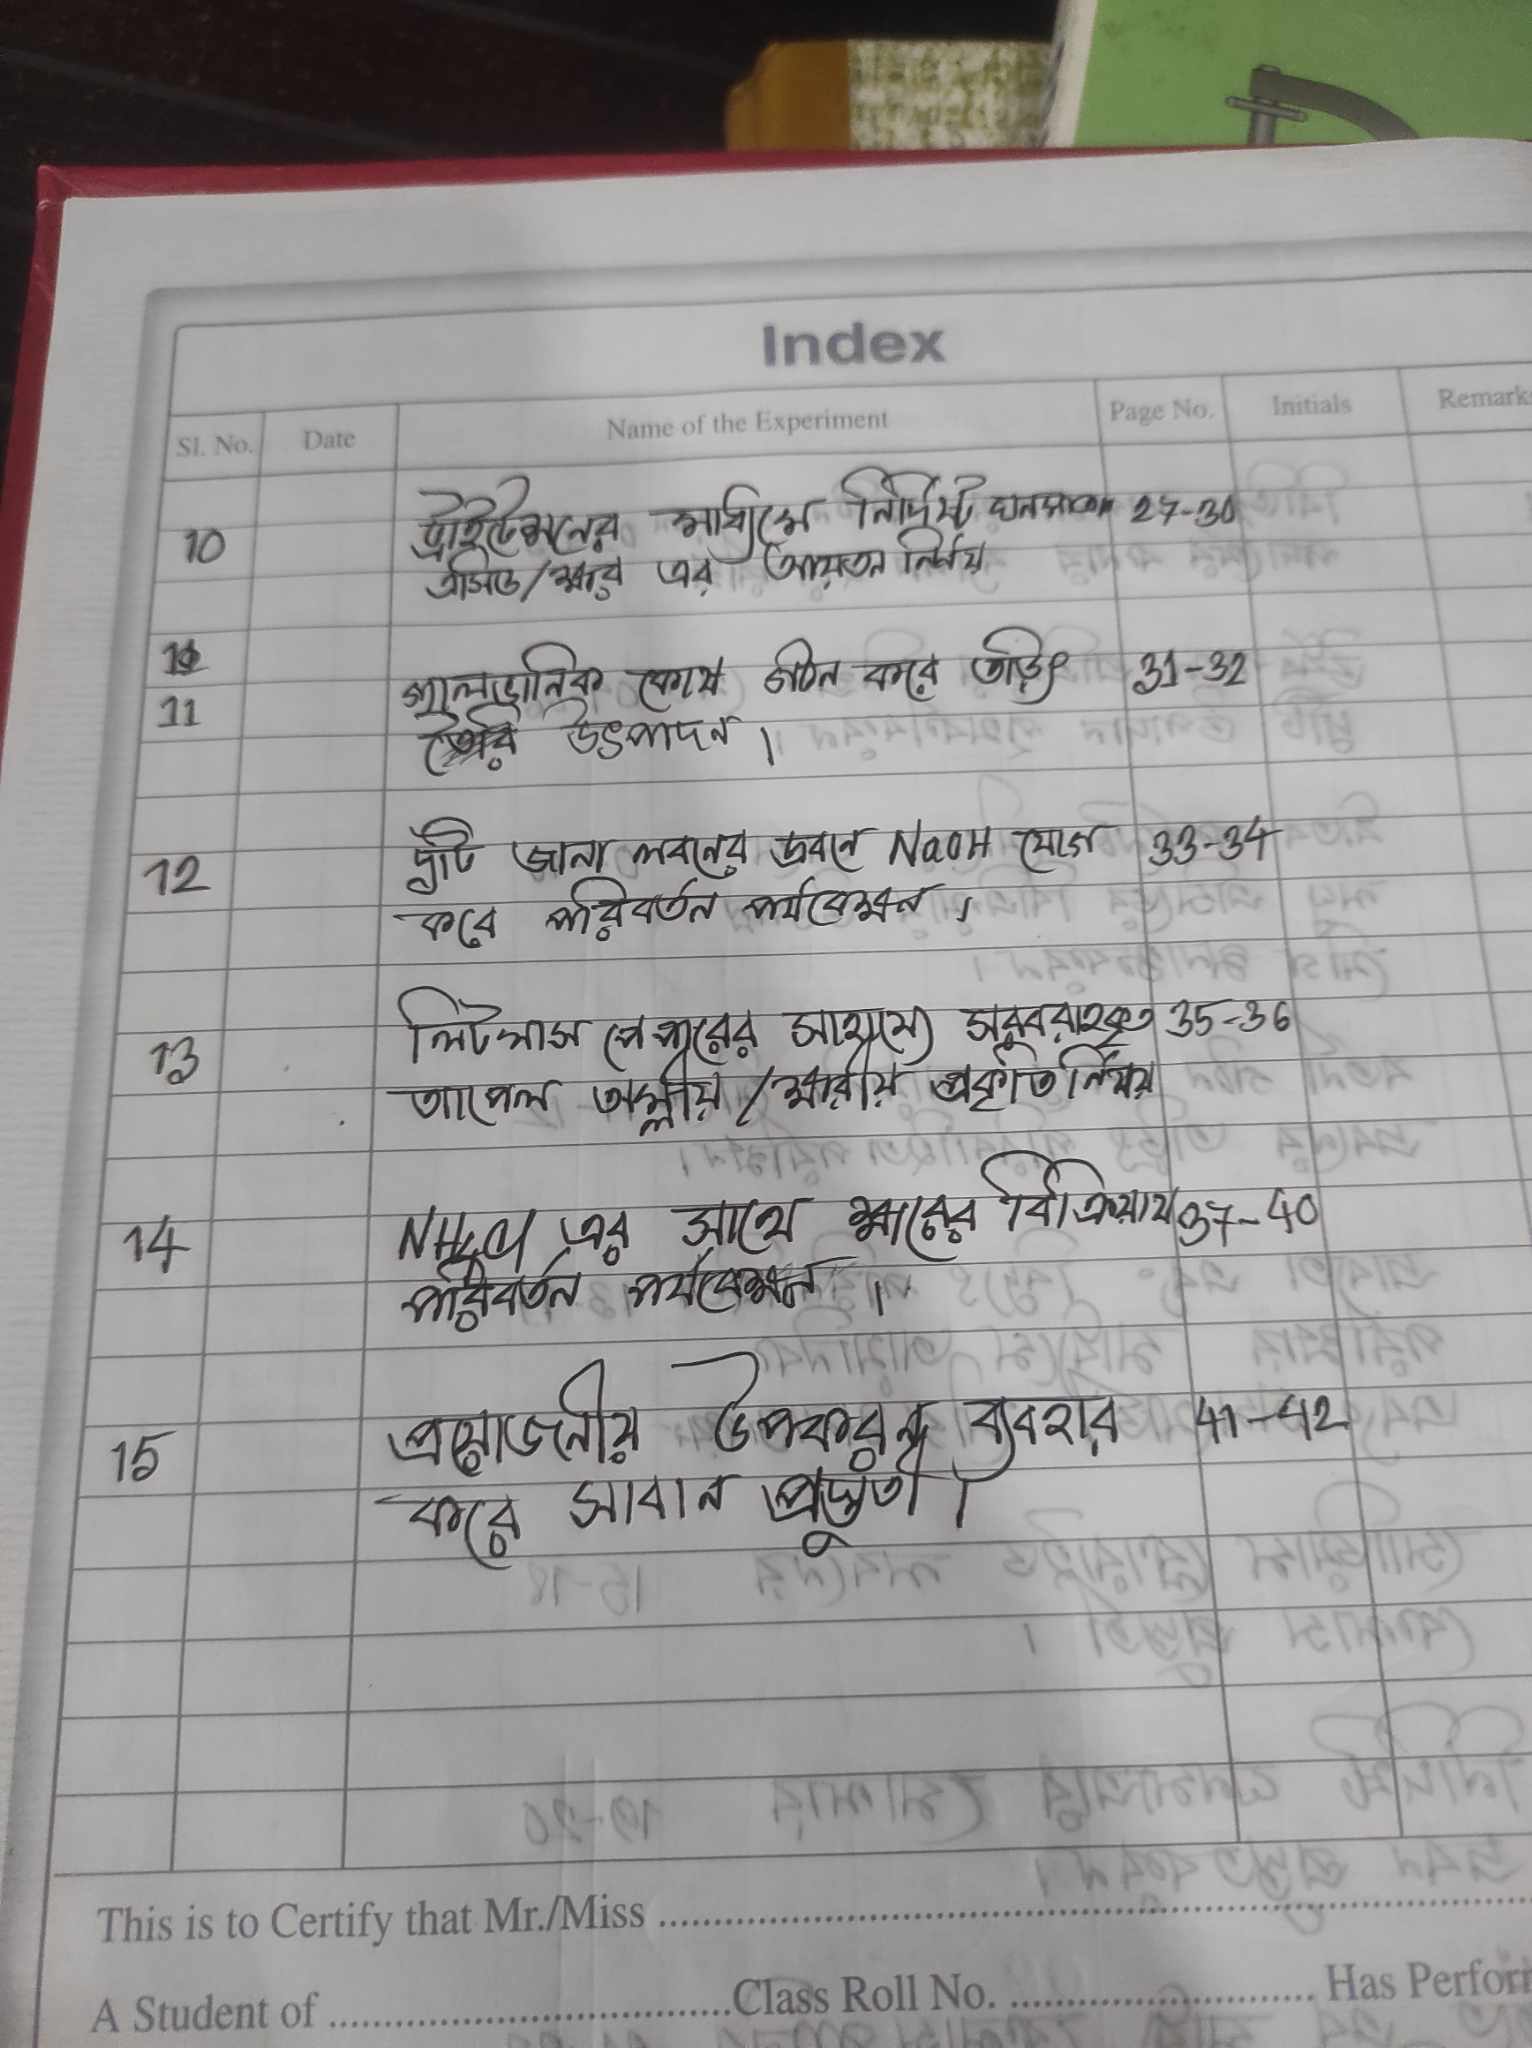 Index
Sl. No. Date Name of the Experiment Page No. Initials Remarks
10 ট্রাইটেশনের মাধ্যমে নির্দিষ্ট ঘনমাত্রার 27-30
এসিড/ক্ষার এর আয়তন নির্ণয়
11 গ্যালভানিক কোষ গঠন করে তড়িৎ 31-32
উৎপাদন।
12 দুটি জানা লবনের দ্রবনে NaOH যোগ 33-34
করে পরিবর্তন পর্যবেক্ষন।
13 লিটমাস পেপারের সাহায্যে সরবরাহকৃত 35-36
আপেল অম্লীয়/ক্ষারীয় প্রকৃতি নির্ণয়
14 NH4Cl এর সাথে ক্ষারের বিক্রিয়ায় 37-40
পরিবর্তন পর্যবেক্ষন।
15 প্রয়োজনীয় উপকরন ব্যবহার 41-42
করে সাবান প্রস্তুতী।
This is to Certify that Mr./Miss
A Student of Class Roll No. Has Perfor